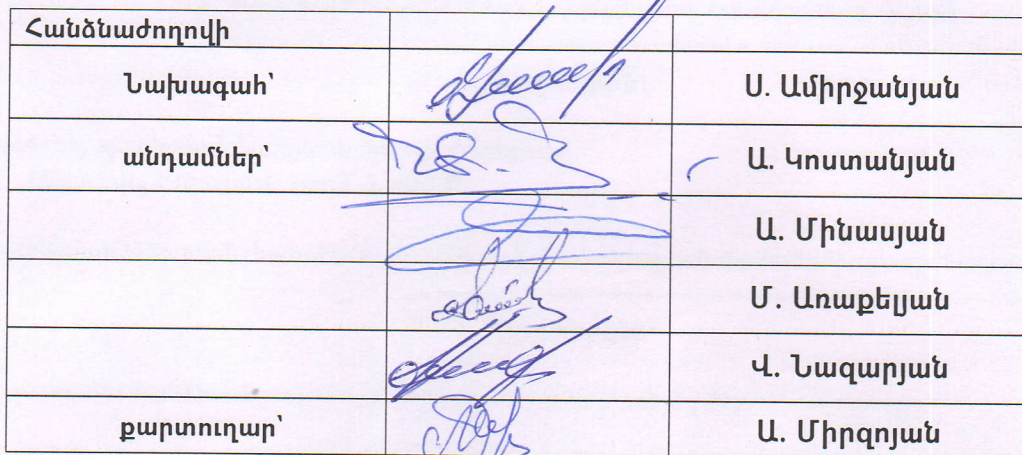 Հանձնաժողովի
Նախագահ՝ Ս. Ամիրջանյան
անդամներ՝ Ա. Կոստանյան
Ա. Մինասյան
Մ. Առաքելյան
Վ. Նազարյան
քարտուղար՝ Ա. Միրզոյան